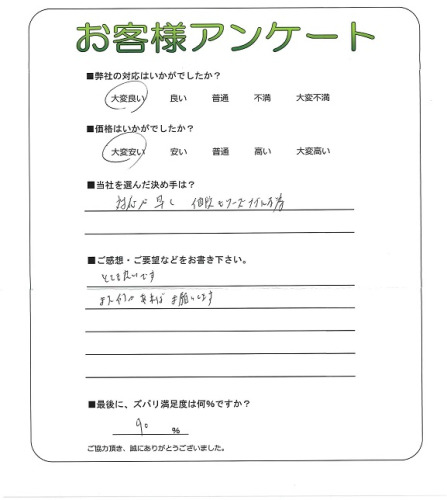 お客様アンケート
■弊社の対応はいかがでしたか？
大変良い 良い 普通 不満 大変不満
■価格はいかがでしたか？
大変安い 安い 普通 高い 大変高い
■当社を選んだ決め手は？
対応が 早く 価段も
■ご感想・ご要望などをお書き下さい。
とても良いです
また何か あれば お願いします
■最後に、ズバリ満足度は何%ですか？
90 %
ご協力頂き、誠にありがとうございました。